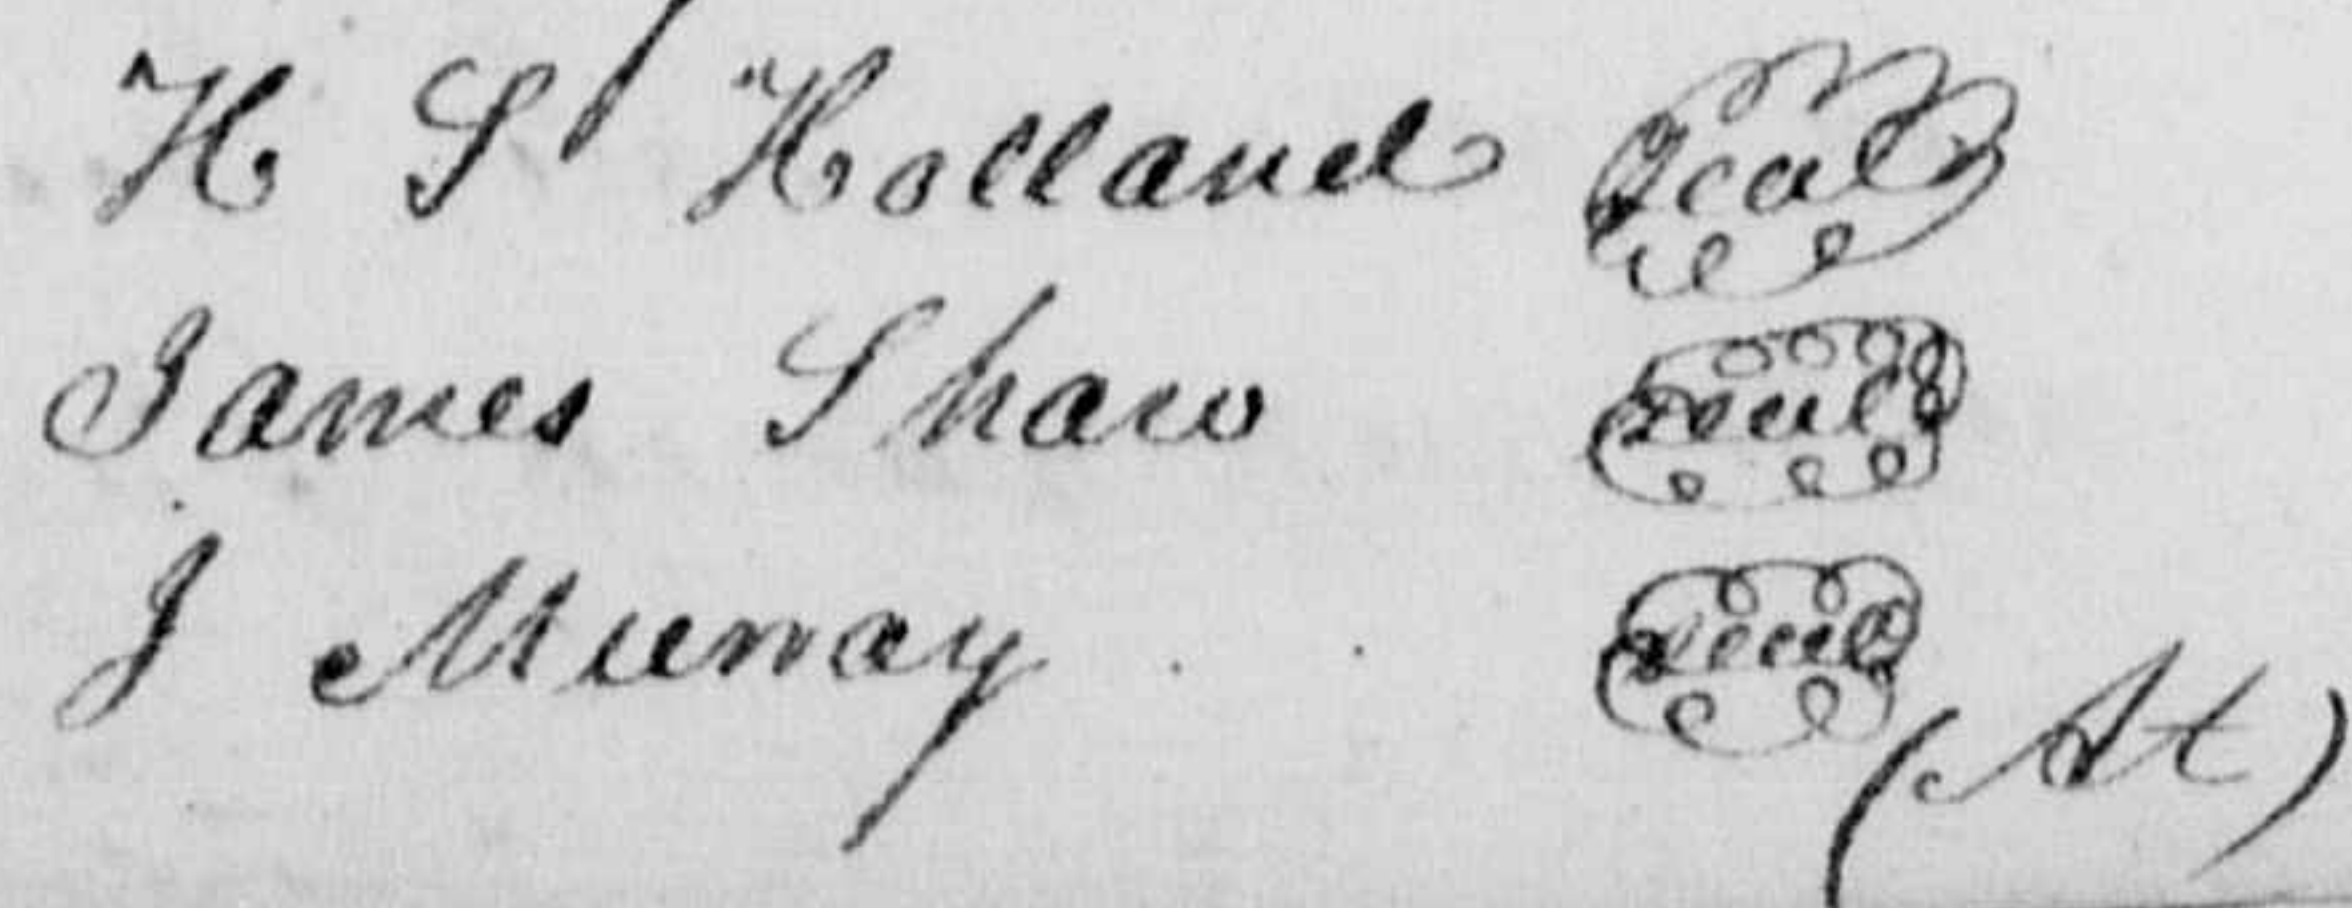 H S Holland Seal
James Shaw Seal
J Murray Seal
(At)